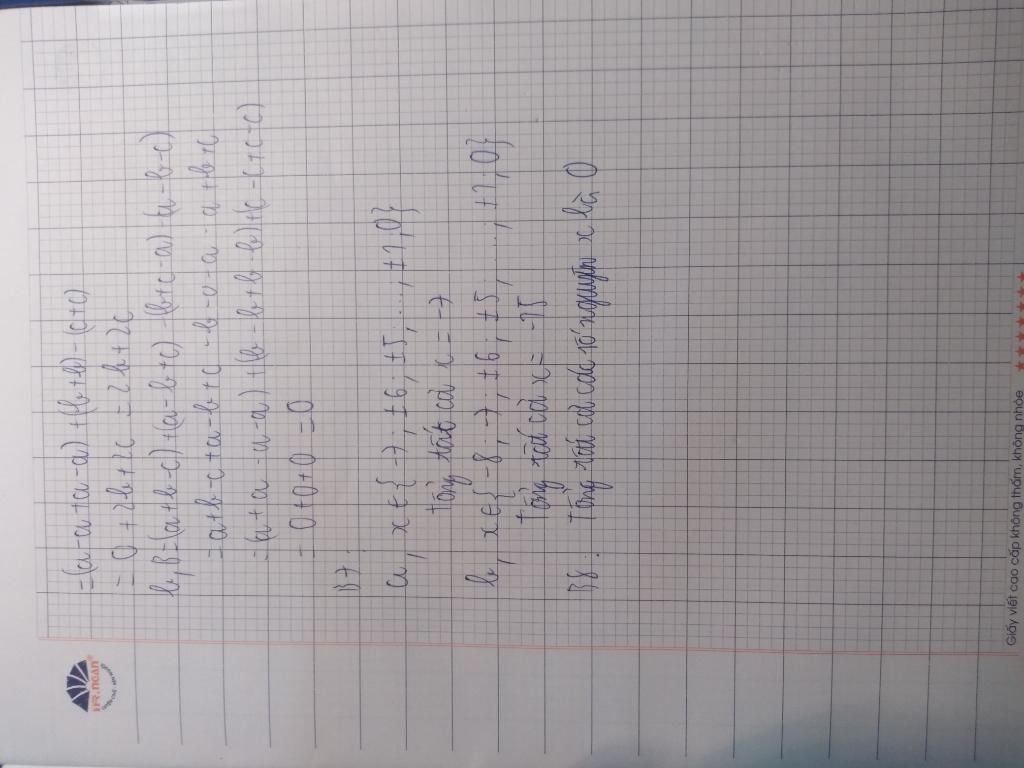 MR.NOAN®
=(a-a+a-a)+(b+b)-(c+c)
= 0 + 2b + 2c = 2b + 2c
b, B=(a+b-c)+(a-b+c)-(b+c-a)-(a-b-c)
= a+b-c+a-b+c -b-c+a-a+b+c
=(a+a-a-a)+(b-b+b-b)+(c-c+c-c)
= 0+0+0 =0
B7.
a, x∈{-7; ±6; ±5; ...; ±1; 0}
Tổng tất cả x = -7
b, x∈{-8; -7; ±6; ±5; ...; ±1; 0}
Tổng tất cả x = -15
B8. Tổng tất cả các số nguyên x là 0
Giấy viết cao cấp không thấm, không nhòe